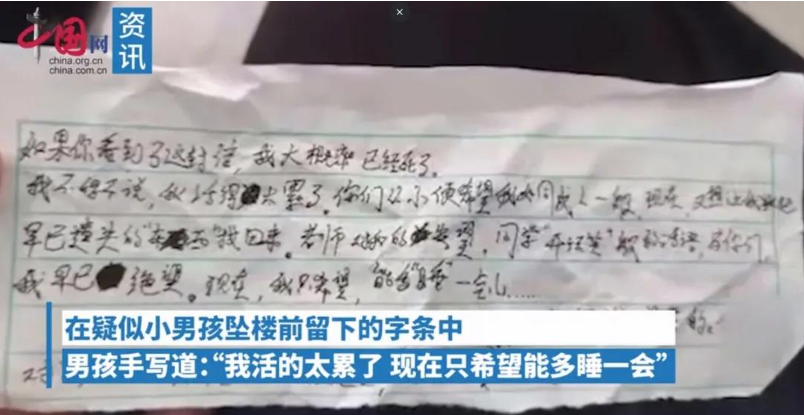 中国网
资讯
china.org.cn
china.com.cn
如果你看到了这封信，我大概率已经死了。
我不得不说，我活得太累了。你们从小便希望我如同成人一般，现在，又想让我
早已遗失的"东西"找回来。老师对我的失望，同学"开玩笑"般的话语，与你们，
我早已绝望。现在，我只希望，能多"睡"一会儿……
在疑似小男孩坠楼前留下的字条中
男孩手写道：“我活的太累了 现在只希望能多睡一会”